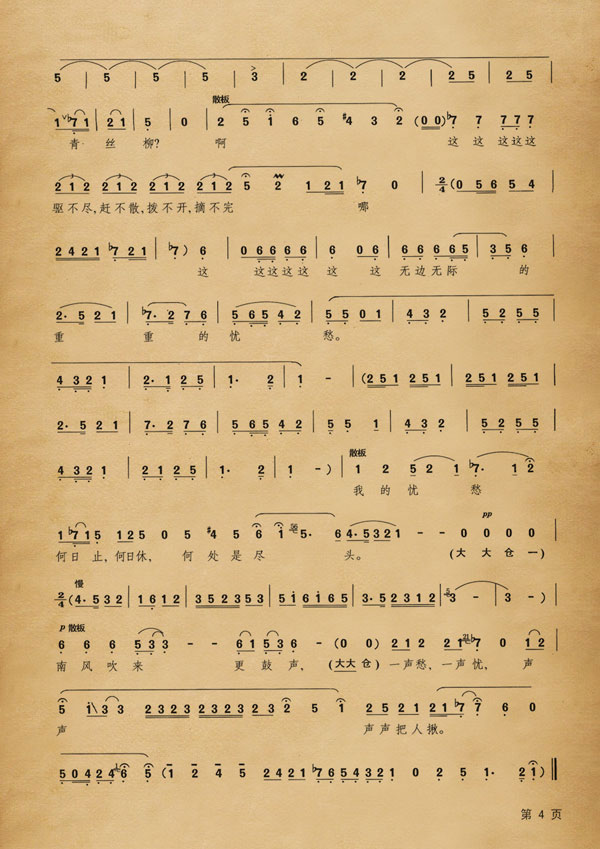 5 | 5 | 5 | 5 | 3 | 2 | 2 | 2 | 2 5 | 2 5 |
散板
1 ♭7 1 | 2 1 | 5 | 0 | 2 5 1 6 5 #4 3 2 (0 0) ♭7 7 7 7 7
青 丝 柳? 啊 这 这 这这这
2 1 2 2 1 2 2 1 2 2 1 2 2 1 2 5 2 1 2 1 ♭7 0 | 2/4 (0 5 6 5 4 |
驱不尽,赶不散,拨不开,摘不完 哪
2 4 2 1 ♭7 2 1 | ♭7) 6 | 0 6 6 6 6 | 6 0 6 | 6 6 6 6 5 | 3 5 6 |
这 这这这这 这 这 无边无际 的
2· 5 2 1 | ♭7· 2 7 6 | 5 6 5 4 2 | 5 5 0 1 | 4 3 2 | 5 2 5 5 |
重 重 的 忧 愁。
4 3 2 1 | 2· 1 2 5 | 1· 2 | 1 - | (2 5 1 2 5 1 | 2 5 1 2 5 1 |
2· 5 2 1 | 7· 2 7 6 | 5 6 5 4 2 | 5 5 1 | 4 3 2 | 5 2 5 5 |
散板
4 3 2 1 | 2 1 2 5 | 1· 2 | 1 - ) | 1 2 5 2 1 ♭7· 1 2
我 的 忧 愁
pp
1 ♭7 1 5 1 2 5 0 5 #4 5 6 1 5· 6 4· 5 3 2 1 - - 0 0 0 0
何日 止,何日休, 何 处 是 尽 头。 (大 大 仓 一)
慢
2/4 (4· 5 3 2 | 1 6 1 2 | 3 5 2 3 5 3 | 5 1 6 1 6 5 | 3· 5 2 3 1 2 | 3 - | 3 - ) |
p 散板
6 6 6 5 3 3 - - 6 1 5 3 6 - (0 0) 2 1 2 2 1 ♭7 0 1 2
南 风 吹 来 更 鼓 声, (大大 仓) 一声愁、一声忧, 声
5 i 3 3 2 3 2 3 2 3 2 3 2 3 2 5 1 2 5 2 1 2 1 7 7 6 0
声 声声把人揪。
5 0 4 2 4 6 5 (1 2 4 5 2 4 2 1 ♭7 6 5 4 3 2 1 0 2 5 1· 2 1)
第 4 页